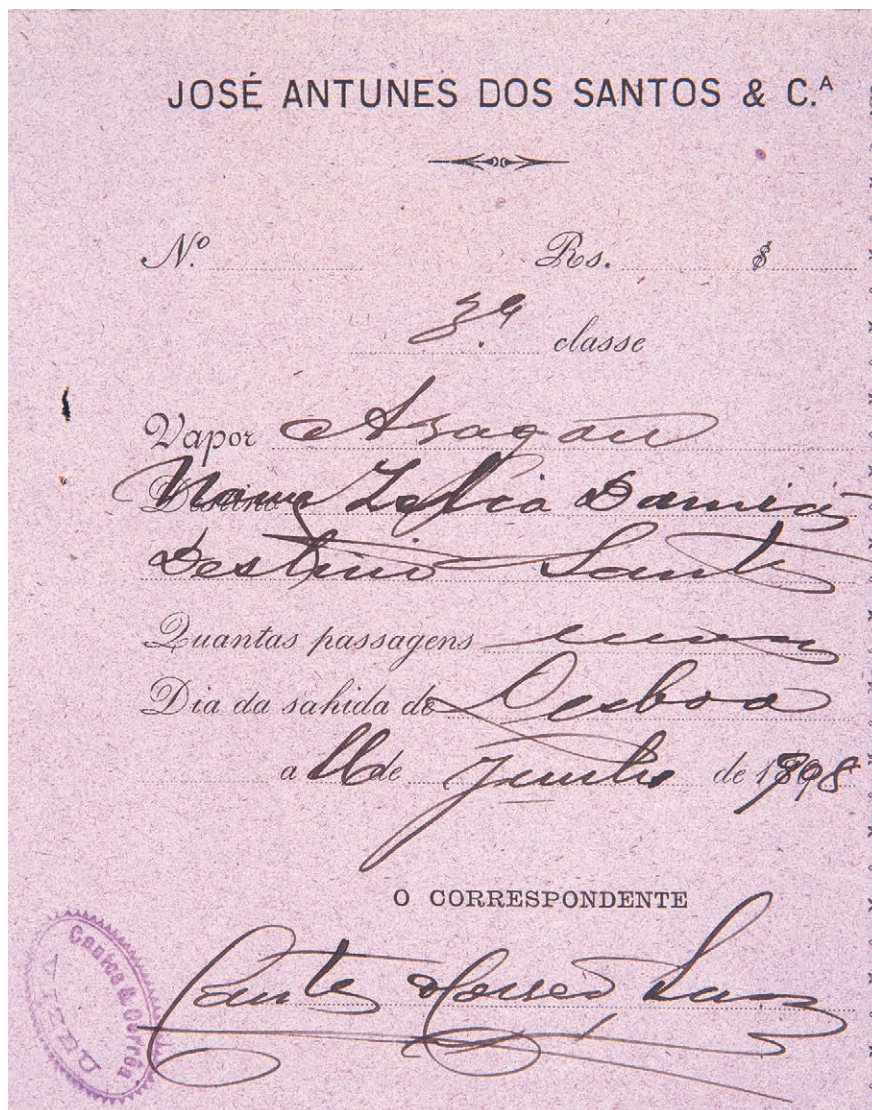 JOSÉ ANTUNES DOS SANTOS & C.ᴬ
N.º Rs. $
3ª classe
Vapor Aragon
Destino Nome
Destino Santos
Quantas passagens uma
Dia da sahida de Lisboa
a de Junho de 1908
O CORRESPONDENTE
& Corrêa
VIZEU